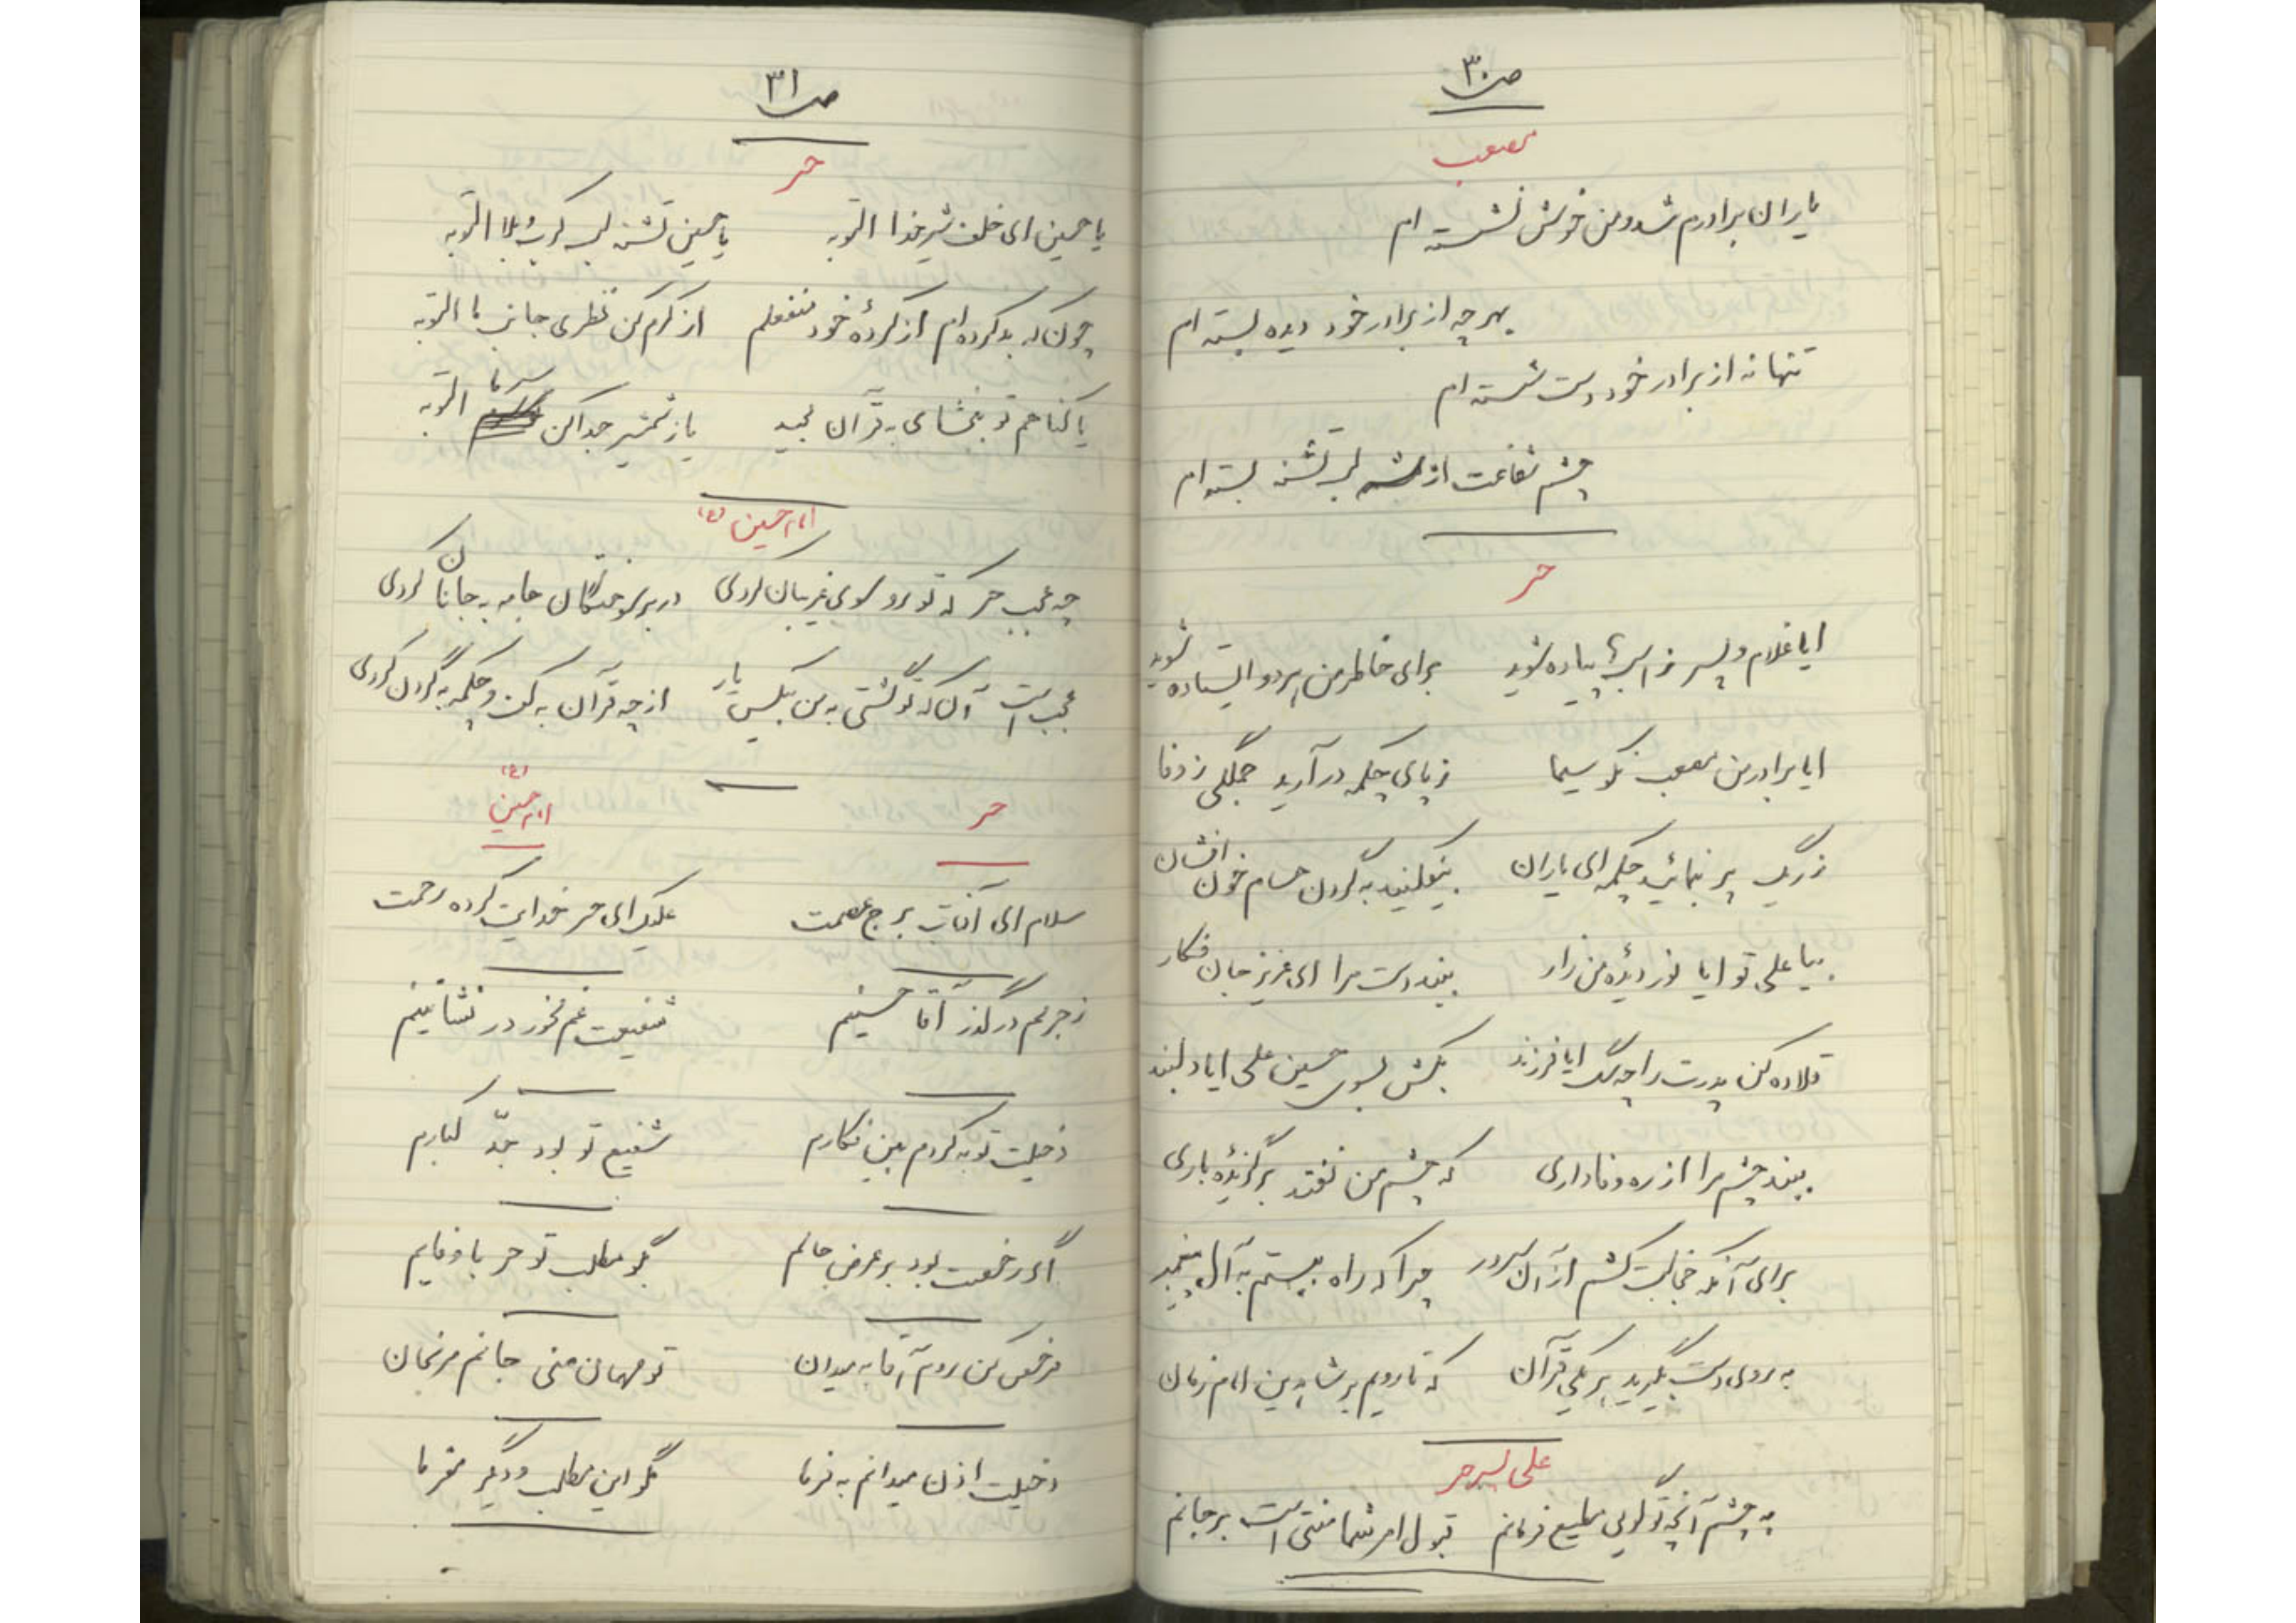 ص۳۰
مصعب
یاران برادرم شد و من خوش نشسته ام
بهر چه از برادر خود دیده بسته ام
تنها نه از برادر خود دست شسته ام
چشم شفاعت از شه لب تشنه بسته ام
حر
ایا غلام و پسر ز اسب ها پیاده شوید برای خاطر من هر دو ایستاده شوید
ایا برادر من مصعب نکو سیما ز پای چکمه در آرید جملگی ز وفا
ز ریگ پر بنمائید چکمه ای یاران بیفکنید به گردن حسام خون افشان
بیا علی تو ایا نور دیدهٔ من زار ببند دست مرا ای عزیز جان فکار
قلاده کن پدرت را چه سگ ایا فرزند بکش بسوی حسین علی ایا دلبند
ببند چشم مرا از ره وفاداری که چشم من نفتد بر گزیدهٔ باری
برای آنکه خجالت کشم از آن سرور چرا که راه ببستم به آل پیغمبر
به روی دست بگیرید هر یکی قرآن که تا رویم بر شاه دین امام زمان
علی پسر حر
به چشم آنچه تو گویی مطیع فرمانم قبول امر شما منتی است بر جانم
ص۳۱
حر
یا حسین ای خلف شیر خدا التوبه یا حسین تشنه لب کرب و بلا التوبه
چون که بد کرده ام از کردهٔ خود منفعلم از کرم کن نظری جانب ما التوبه
یا گناهم تو ببخشای به قرآن مجید یا ز شمشیر جدا کن سر ما التوبه
امام حسین (ع)
چه عجب حر که تو رو سوی غریبان کردی در بر سوختگان جامه به جانان کردی
عجب است آن که تو گشتی به من بیکس یار از چه قرآن به کف و چکمه به گردن کردی
حر امام حسین (ع)
سلام ای آفتاب برج عصمت علیک ای حر خدایت کرده رحمت
ز جرمم در گذر آقا حسینم شفیعت غم مخور در نشأتینم
دخیلت توبه کردم بین فکارم شفیع تو بود جدّ کبارم
اگر رخصت بود بر عرض حالم بگو مطلب تو حر با وفایم
مرخص کن روم آقا به میدان تو مهمان منی جانم مرنجان
دخیلت اذن میدانم به فرما مگو این مطلب و دیگر مفرما